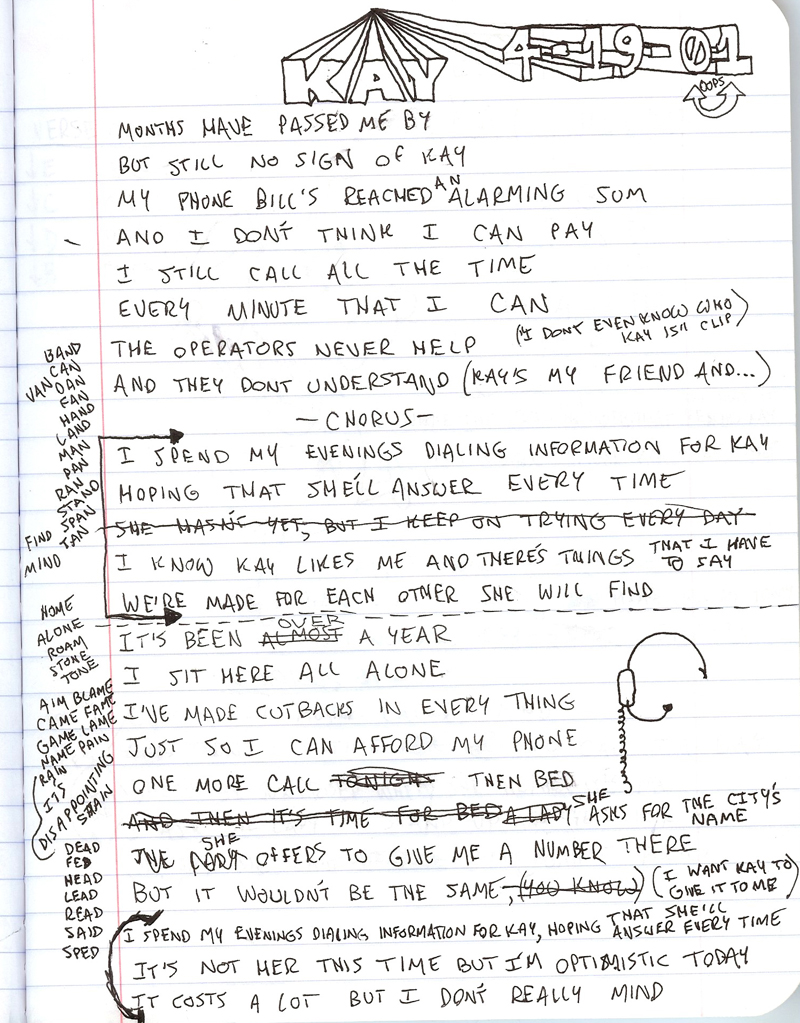 KAY 4-19-01
OOPS
MONTHS HAVE PASSED ME BY
BUT STILL NO SIGN OF KAY
MY PHONE BILL'S REACHED AN ALARMING SUM
AND I DON'T THINK I CAN PAY
I STILL CALL ALL THE TIME
EVERY MINUTE THAT I CAN
THE OPERATORS NEVER HELP ("I DON'T EVEN KNOW WHO KAY IS!! CLIP)
AND THEY DONT UNDERSTAND (KAY'S MY FRIEND AND...)
—CHORUS—
I SPEND MY EVENINGS DIALING INFORMATION FOR KAY
HOPING THAT SHE'LL ANSWER EVERY TIME
SHE HASN'T YET, BUT I KEEP ON TRYING EVERY DAY
I KNOW KAY LIKES ME AND THERE'S THINGS THAT I HAVE TO SAY
WE'RE MADE FOR EACH OTHER SHE WILL FIND
IT'S BEEN ALMOST OVER A YEAR
I SIT HERE ALL ALONE
I'VE MADE CUTBACKS IN EVERY THING
JUST SO I CAN AFFORD MY PHONE
ONE MORE CALL TONIGHT THEN BED
AND THEN IT'S TIME FOR BED A LADY SHE ASKS FOR THE CITY'S NAME
THE LADY SHE OFFERS TO GIVE ME A NUMBER THERE
BUT IT WOULDN'T BE THE SAME, (YOU KNOW) (I WANT KAY TO GIVE IT TO ME)
I SPEND MY EVENINGS DIALING INFORMATION FOR KAY, HOPING THAT SHE'LL ANSWER EVERY TIME
IT'S NOT HER THIS TIME BUT I'M OPTIMISTIC TODAY
IT COSTS A LOT BUT I DON'T REALLY MIND
BAND
CAN
VAN DAN
FAN
HAND
LAND
MAN
PAN
RAN
STAND
SPAN
TAN
FIND
MIND
HOME
ALONE
ROAM
STONE
TONE
AIM BLAME
CAME FAME
GAME LAME
NAME PAIN
RAIN
IT'S
DISAPPOINTING
STAIN
DEAD
FED
HEAD
LEAD
READ
SAID
SPED